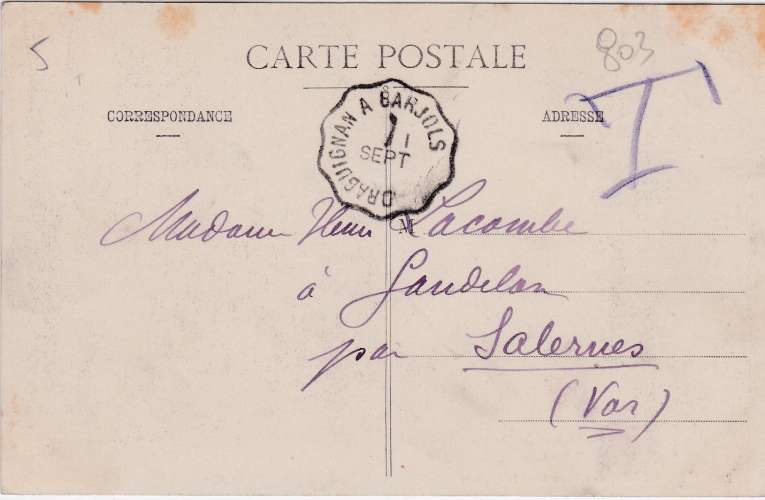 5
803
CARTE POSTALE
T
CORRESPONDANCE
ADRESSE
DRAGUIGNAN A BARJOLS
1
SEPT
Madame Henri Lacombe
à Gandelan
par Salernes
(Var)